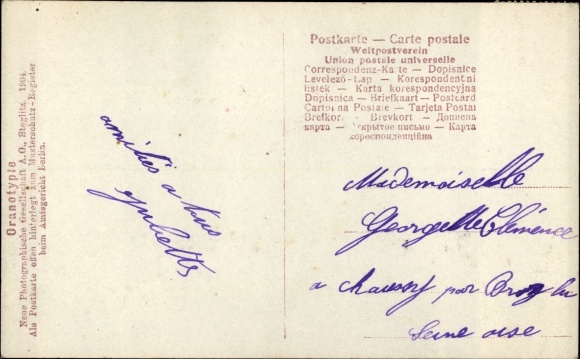 Oranotypie
Neue Photographische Gesellschaft A.G., Steglitz. 1904.
Als Postkarte offen hinterlegt zum Musterschutz-Register
beim Amtsgericht Berlin.
amitiés a tous
Postkarte — Carte postale
Weltpostverein
Union postale universelle
Correspondenz-Karte — Dopisnice
Levelező-Lap — Korespondentni
listek — Karta korespondencyjna
Dopisnica — Briefkaart — Postcard
Cartolina Postale — Tarjeta Postal
Brefkort — Brevkort — Дописна
карта — Открытое письмо — Карта
кореспонденційна
Mademoiselle
Georgette Clémence
a chaussy par Bray lu
Seine oise